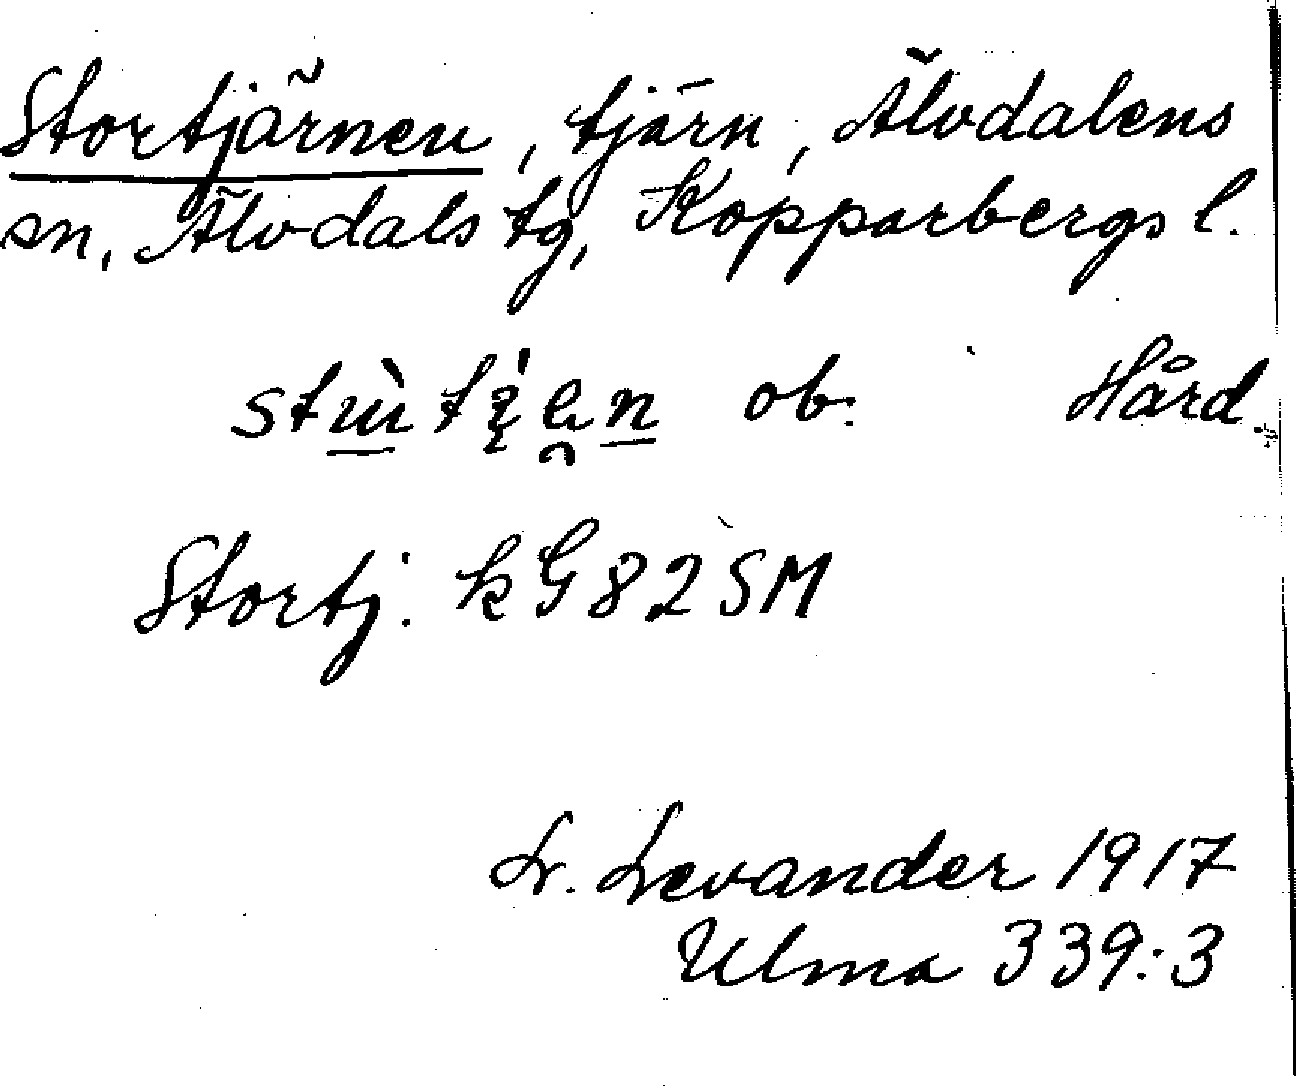 Stortjärnen, tjärn, Älvdalens
sn, Älvdals tg, Kopparbergs l.
ob. Hård.
Stortj. kG82SM
L. Levander 1917
Ulma 339:3